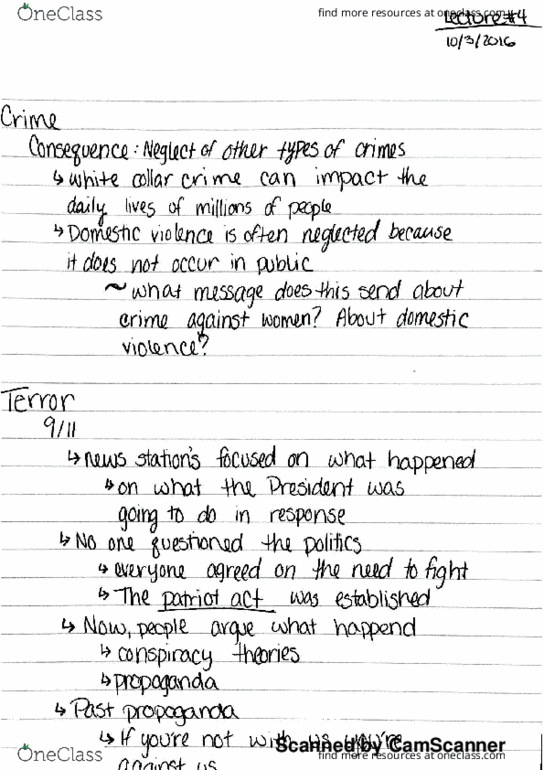 OneClass
find more resources at oneclass.com
Lecture #4
10/3/2016
Crime
Consequence: Neglect of other types of crimes
↳ White collar crime can impact the
daily lives of millions of people
↳ Domestic violence is often neglected because
it does not occur in public
~ what message does this send about
crime against women? About domestic
violence?
Terror
9/11
↳ news station's focused on what happened
↳ on what the President was
going to do in response
↳ No one questioned the politics
↳ everyone agreed on the need to fight
↳ The patriot act was established
↳ Now, people argue what happend
↳ conspiracy theories
↳ propaganda
↳ Past propaganda
↳ If you're not with us you're
Scanned by CamScanner
against us
OneClass
find more resources at oneclass.com